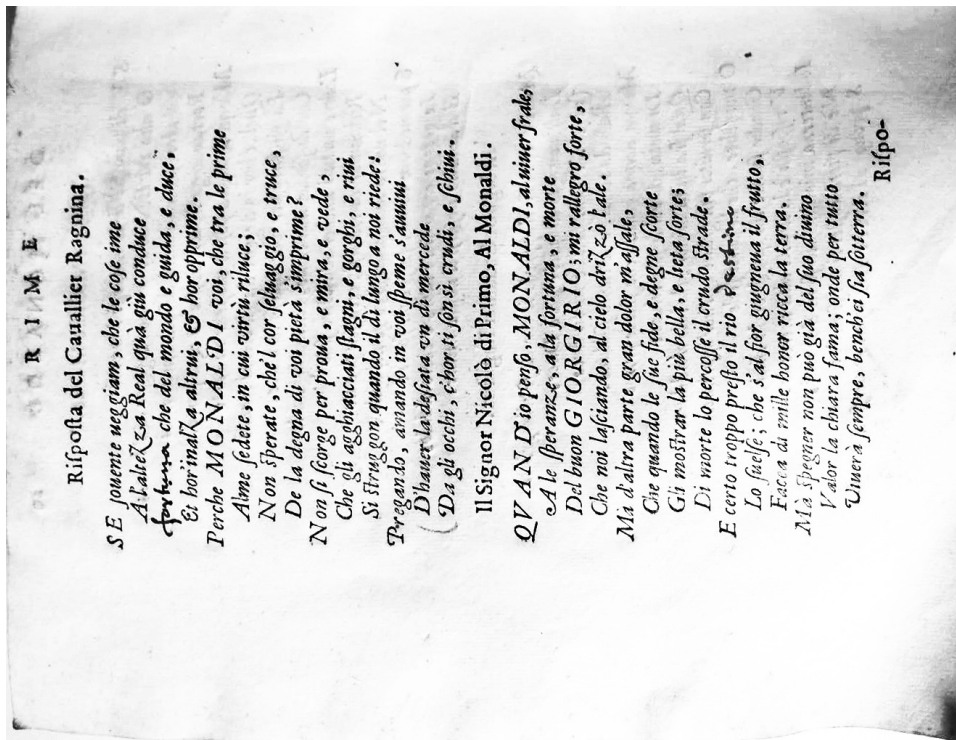 RIME
Riſpoſta del Caualliet Ragnina.
SE souente ueggiam, che le coſe ime
A l'alteZza Real quà giù conduce
fortuna che del mondo e guida, e duce,
Et hor'inalZa altrui, & hor opprime.
Perche MONALDI voi, che tra le prime
Alme ſedete, in cui virtù riluce;
Non ſperate, che'l cor ſeluaggio, e truce,
De la degna di voi pietà s'imprime?
Non ſi ſcorge per proua, e mira, e vede,
Che gli agghiacciati ſtagni, e gorghi, e riui
Si ſtruggon quando il dì lungo a noi riede:
Pregando, amando in voi ſpeme s'auuiui
D'hauer la deſiata vn dì mercede
Da gli occhi, c'hor ti ſon sì crudi, e ſchiui.
Il Signor Nicolò di Primo, Al Monaldi.
QVAND'io penſo, MONALDI, al uiuer frale,
A le ſperanze, a la fortuna, e morte
Del buon GIORGIRIO; mi rallegro forte,
Che noi laſciando, al cielo driZzò l'ale.
Ma d'altra parte gran dolor m'aſſale,
Che quando le ſue fide, e degne ſcorte
Gli moſtrar la più bella, e lieta ſorte;
Di morte lo percoſſe il crudo ſtrade.
E certo troppo preſto il rio destino
Lo ſuelſe; che s'al fior giugneua il frutto,
Facea di mille honor ricca la terra.
Mà ſpegner non può già del ſuo diuino
Valor la chiara fama; onde per tutto
Viuerà ſempre, benche ei ſia ſotterra.
Riſpo-